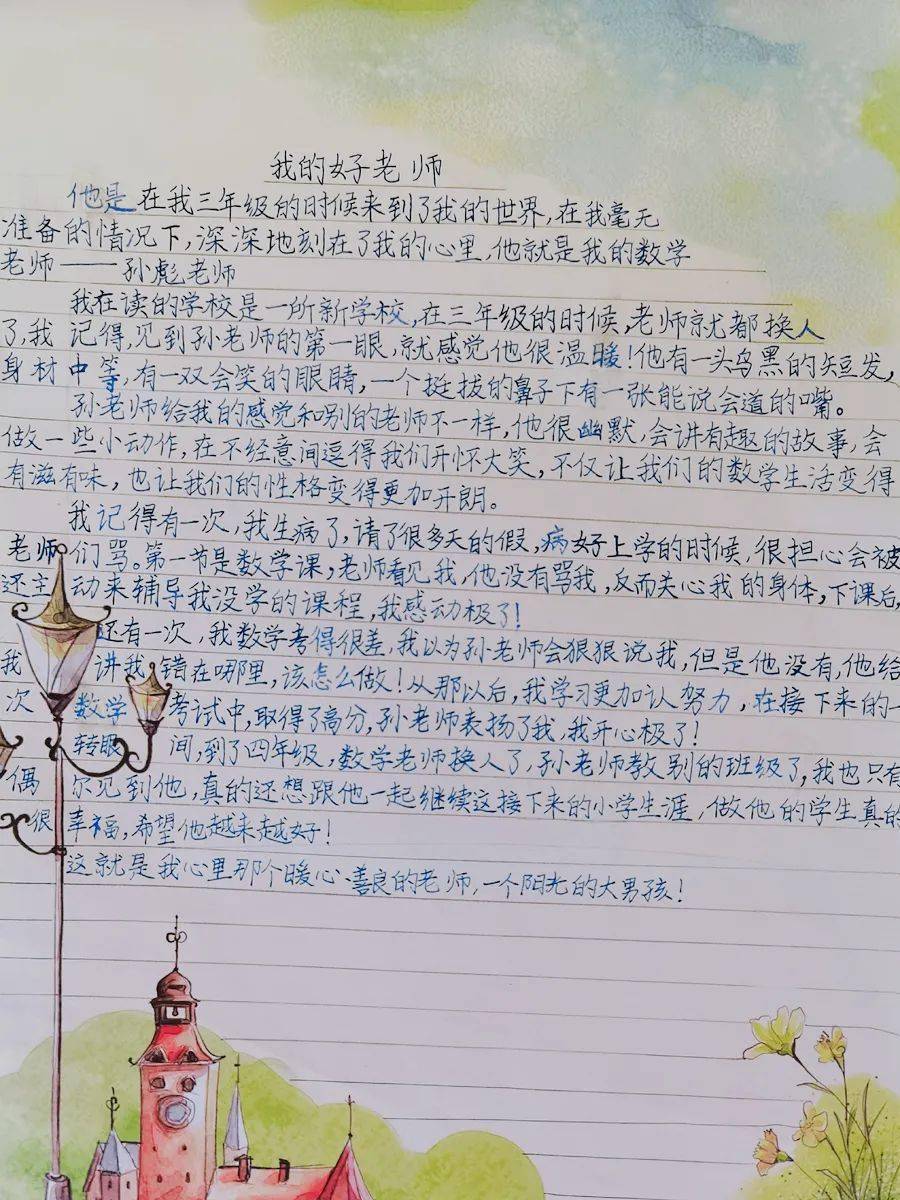 我的好老师
他是在我三年级的时候来到了我的世界,在我毫无
准备的情况下,深深地刻在了我的心里,他就是我的数学
老师——孙彪老师
我在读的学校是一所新学校,在三年级的时候,老师就都换人
了,我记得,见到孙老师的第一眼,就感觉他很温暖!他有一头乌黑的短发,
身材中等,有一双会笑的眼睛,一个挺拔的鼻子下有一张能说会道的嘴。
孙老师给我的感觉和别的老师不一样,他很幽默,会讲有趣的故事,会
做一些小动作,在不经意间逗得我们开怀大笑,不仅让我们的数学生活变得
有滋有味,也让我们的性格变得更加开朗。
我记得有一次,我生病了,请了很多天的假,病好上学的时候,很担心会被
老师们骂。第一节是数学课,老师看见我,他没有骂我,反而关心我的身体,下课后,
还主动来辅导我没学的课程,我感动极了!
还有一次,我数学考得很差,我以为孙老师会狠狠说我,但是他没有,他给
我讲我错在哪里,该怎么做!从那以后,我学习更加认努力,在接下来的一
次数学考试中,取得了高分,孙老师表扬了我,我开心极了!
转眼间,到了四年级,数学老师换人了,孙老师教别的班级了,我也只有
偶尔见到他,真的还想跟他一起继续这接下来的小学生涯,做他的学生真的
很幸福,希望他越来越好!
这就是我心里那个暖心、善良的老师,一个阳光的大男孩!